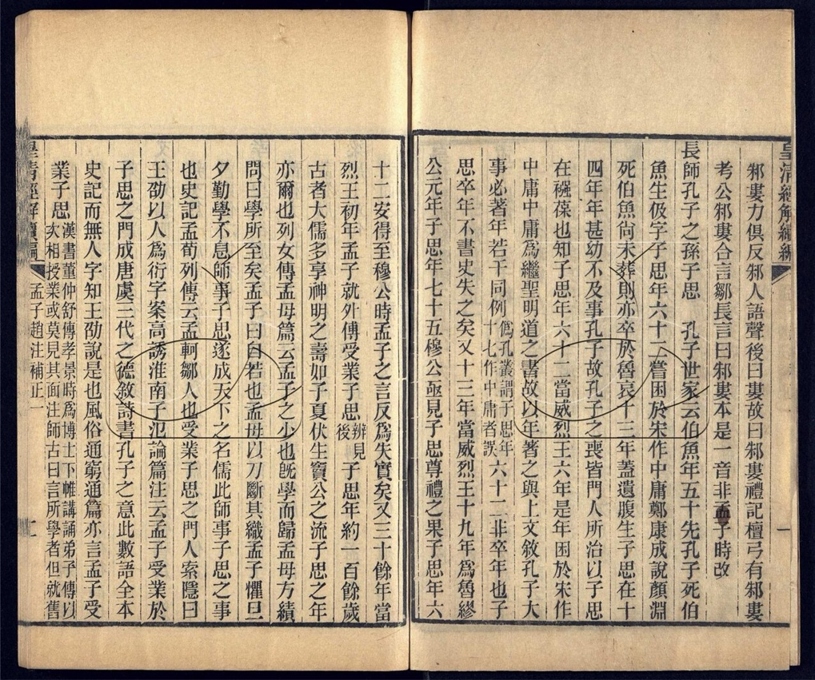 皇清經解續編
邾婁力俱反邾人語聲後曰婁故曰邾婁禮記檀弓有邾婁
考公邾婁合言鄒長言曰邾婁本是一音非孟子時改
長師孔子之孫子思 孔子世家云伯魚年五十先孔子死伯
魚生伋字子思年六十二嘗困於宋作中庸鄭康成說顏淵
死伯魚尙未葬則亦卒於魯哀十三年蓋遺腹生子思在十
四年年甚幼不及事孔子故孔子之喪皆門人所治以子思
在襁葆也知子思年六十二當威烈王六年是年困於宋作
中庸中庸爲繼聖明道之書故以年著之與上文敘孔子大
事必著年若干同例僞孔叢謂子思年十七作中庸者誤六十二非卒年也子
思卒年不書史失之矣又十三年當威烈王十九年爲魯繆
公元年子思年七十五穆公亟見子思尊禮之果子思年六
十二安得至穆公時孟子之言反爲失實矣又三十餘年當
烈王初年孟子就外傅受業子思辨見後子思年約一百餘歲
古者大儒多享神明之壽如子夏伏生竇公之流子思之年
亦爾也列女傳孟母篇云孟子之少也旣學而歸孟母方績
問曰學所至矣孟子曰自若也孟母以刀斷其織孟子懼旦
夕勤學不息師事子思遂成天下之名儒此師事子思之事
也史記孟荀列傳云孟軻鄒人也受業子思之門人索隱曰
王劭以人爲衍字案高誘淮南子氾論篇注云孟子受業於
子思之門成唐虞三代之德敘詩書孔子之意此數語全本
史記而無人字知王劭說是也風俗通窮通篇亦言孟子受
業子思漢書董仲舒傳孝景時爲博士下帷講誦弟子傳以次相授業或莫見其面注師古曰言所學者但就舊
皇清經解續編
孟子趙注補正一